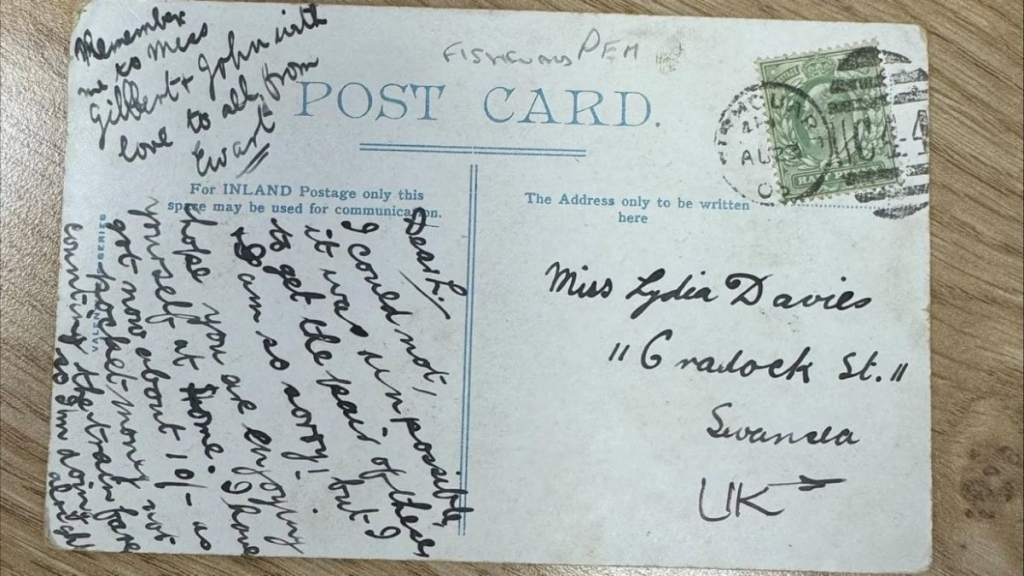 Remember
me to Miss
Gilbert + John with
love to all from
Ewart
PEM
POST CARD.
For INLAND Postage only this
space may be used for communication.
The Address only to be written
here
Dear L.
I could not,
it was impossible,
to get the pair of these
& I am so sorry! but I
hope you are enjoying
yourself at home. I have
got now about 10/- as
pocket-money not
counting the train fare
so I'm doing alright
Miss Lydia Davies
11 Cradock St.
Swansea
UK
AU 3